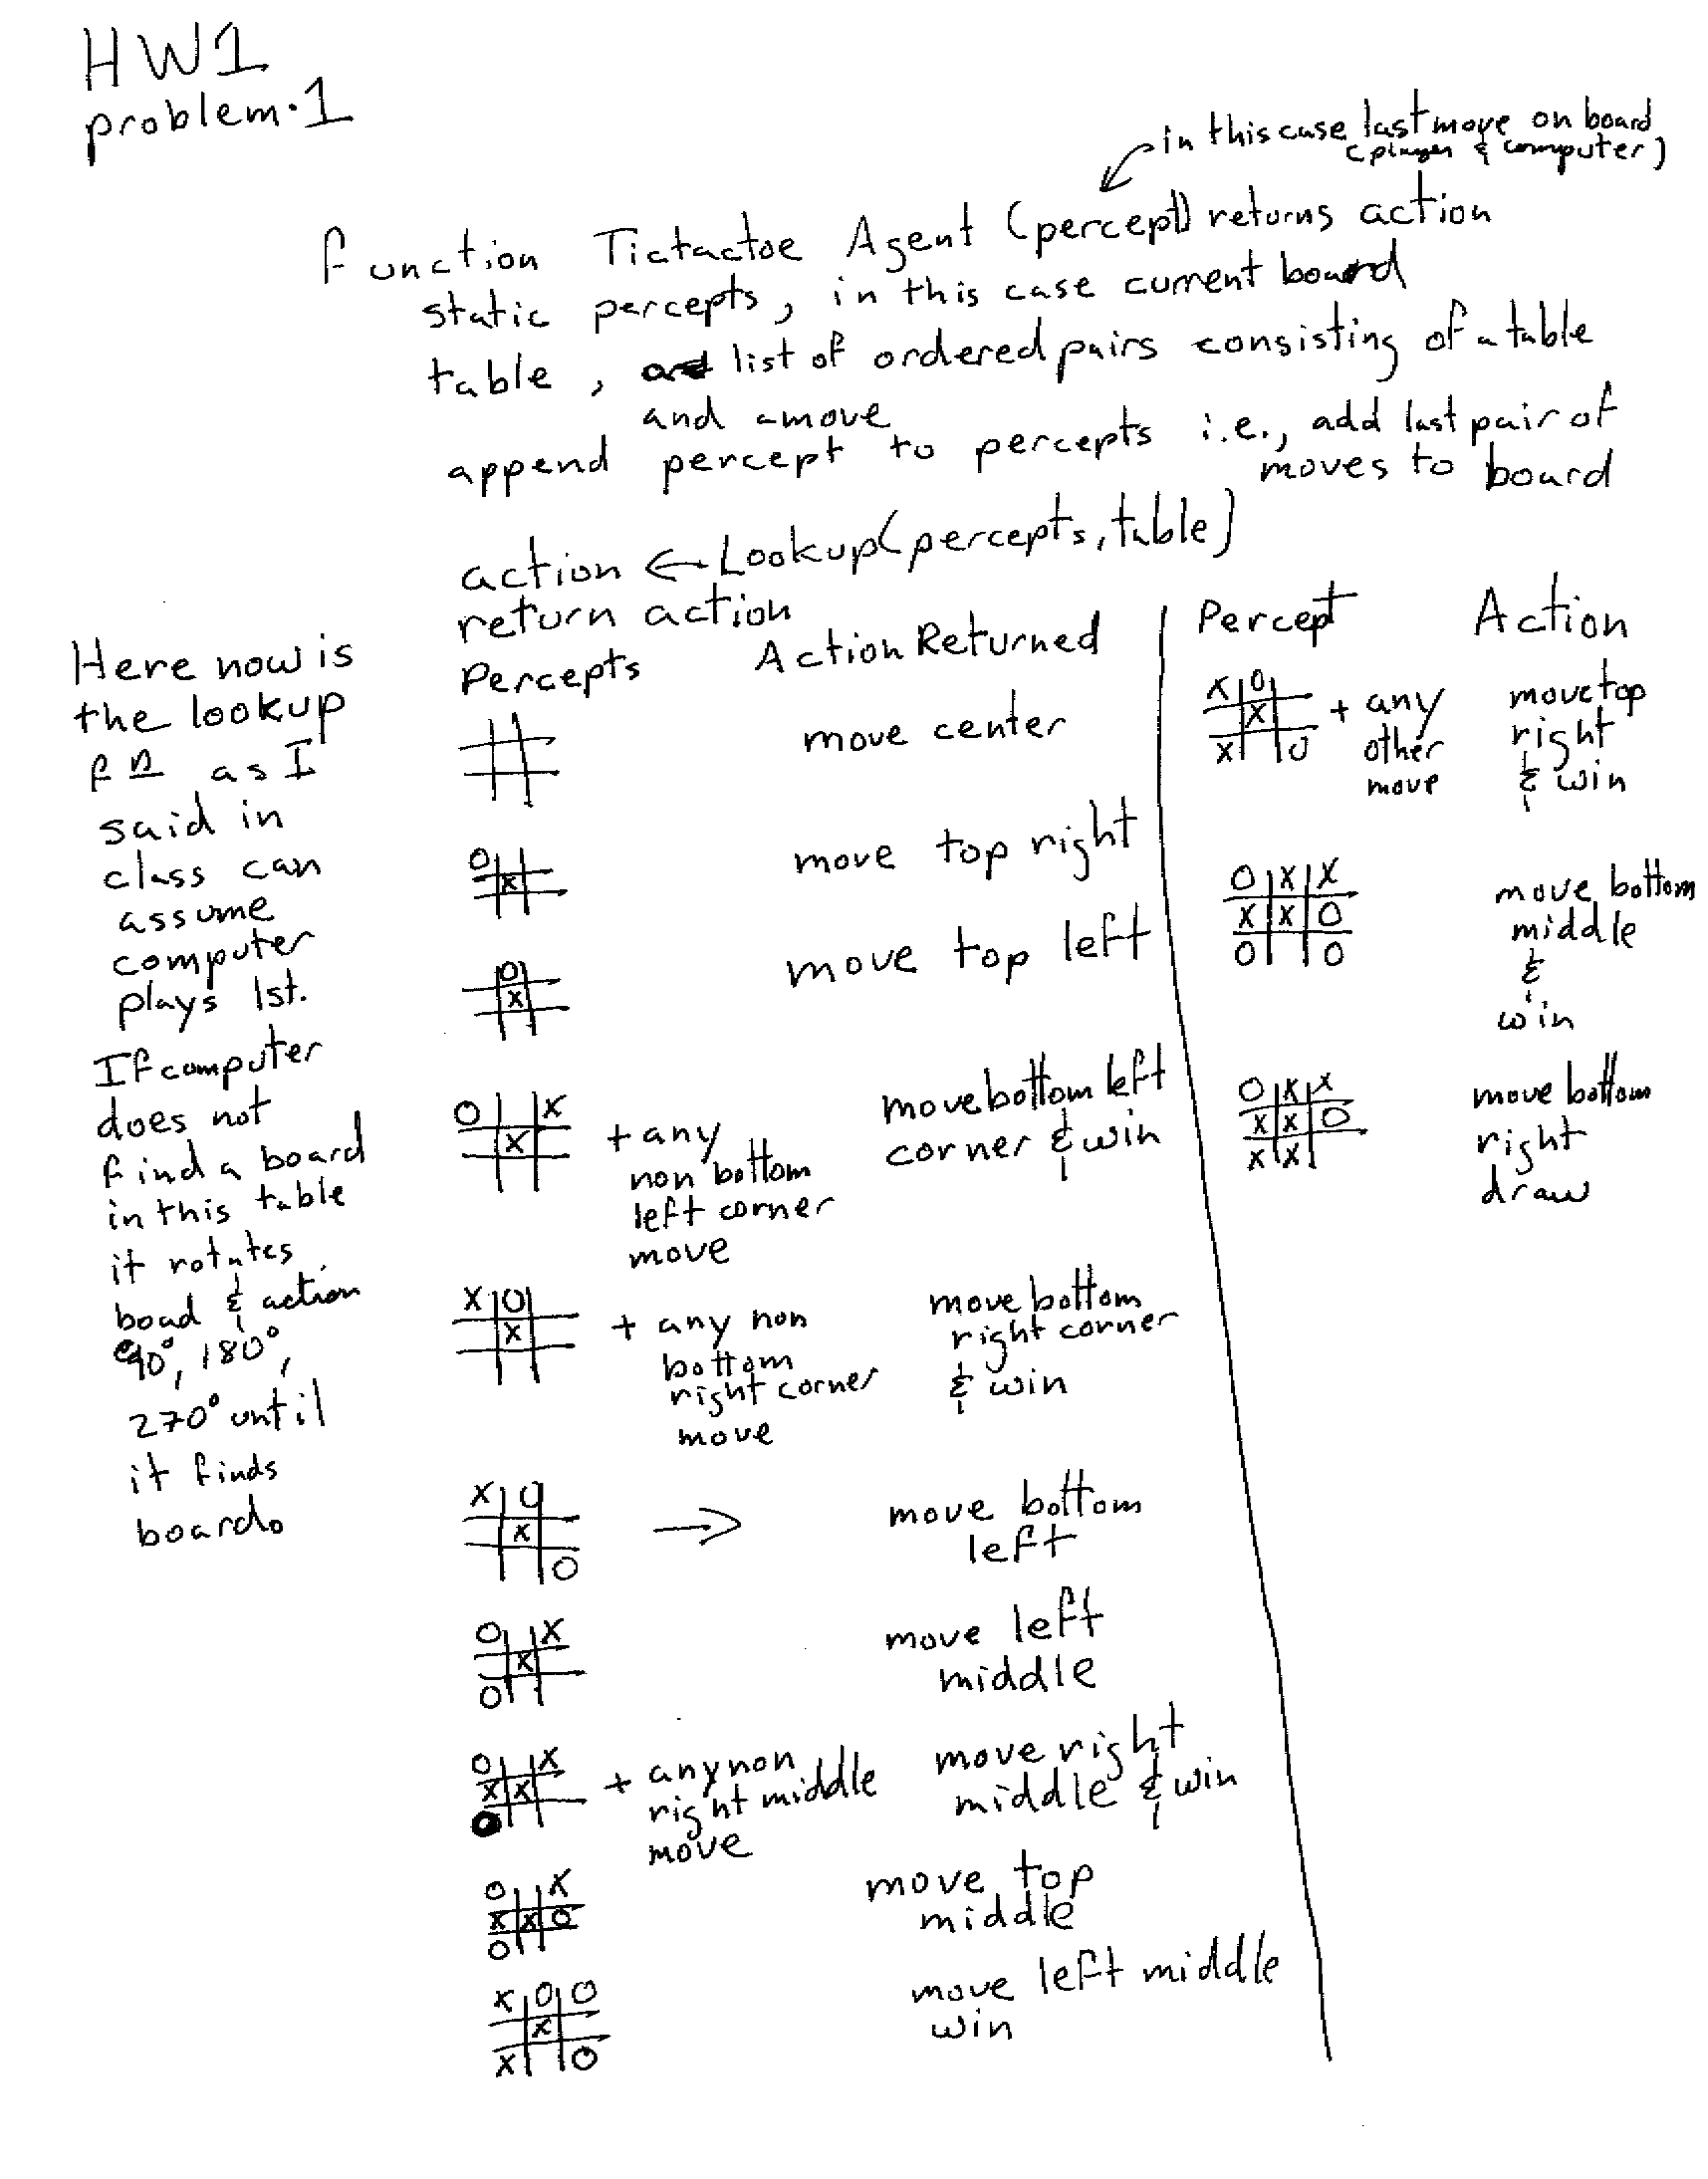 HW1
problem.1
in this case last move on board
(player & computer)
function Tictactoe Agent (percept) returns action
static percepts, in this case current board
table, list of ordered pairs consisting of a table
and a move
append percept to percepts i.e., add last pair of
moves to board
action ← Lookup(percepts, table)
return action
Here now is
the lookup
fn as I
said in
class can
assume
computer
plays 1st.
If computer
does not
find a board
in this table
it rotates
boad & action
90°, 180°,
270° until
it finds
board.
Percepts Action Returned
move center
O
X
move top right
O
X
move top left
O X
X
+ any
non bottom
left corner
move
move bottom left
corner & win
X O
X
+ any non
bottom
right corner
move
move bottom
right corner
& win
X O
X
O
→
move bottom
left
O X
X
O
move left
middle
O X
X X
O
+ any non
right middle
move
move right
middle & win
O X
X X O
O
move top
middle
X O O
X
X O
move left middle
win
Percept Action
X O
X
X O
+ any
other
move
move top
right
& win
O X X
X X O
O O
move bottom
middle
&
win
O X X
X X O
X X
move bottom
right
draw